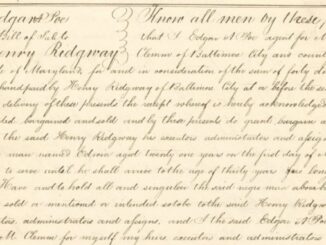 Edgar A Poe
Bill of Sale to
Henry Ridgway
Know all men by these
that I Edgar A Poe agent for M
Clemm of Baltimore City and count
of Maryland, for and in consideration of the sum of forty do
hand paid by Henry Ridgway of Baltimore City at or before the se
delivery of these presents the receipt whereof is hereby acknowledged
ted bargained and sold and by these presents do grant, bargain a
the said Henry Ridgway his executors administrators and assigns
man named Edwin aged twenty one years on the first day of
to serve until he shall arrive to the age of thirty years
Have and to hold all and singular the said negro man above
sold or mentioned or intended so to be to the said Henry Ridgw
tors, administrators and assigns, and I the said Edgar A Poe
M. Clemm for myself my heirs executors and administrators